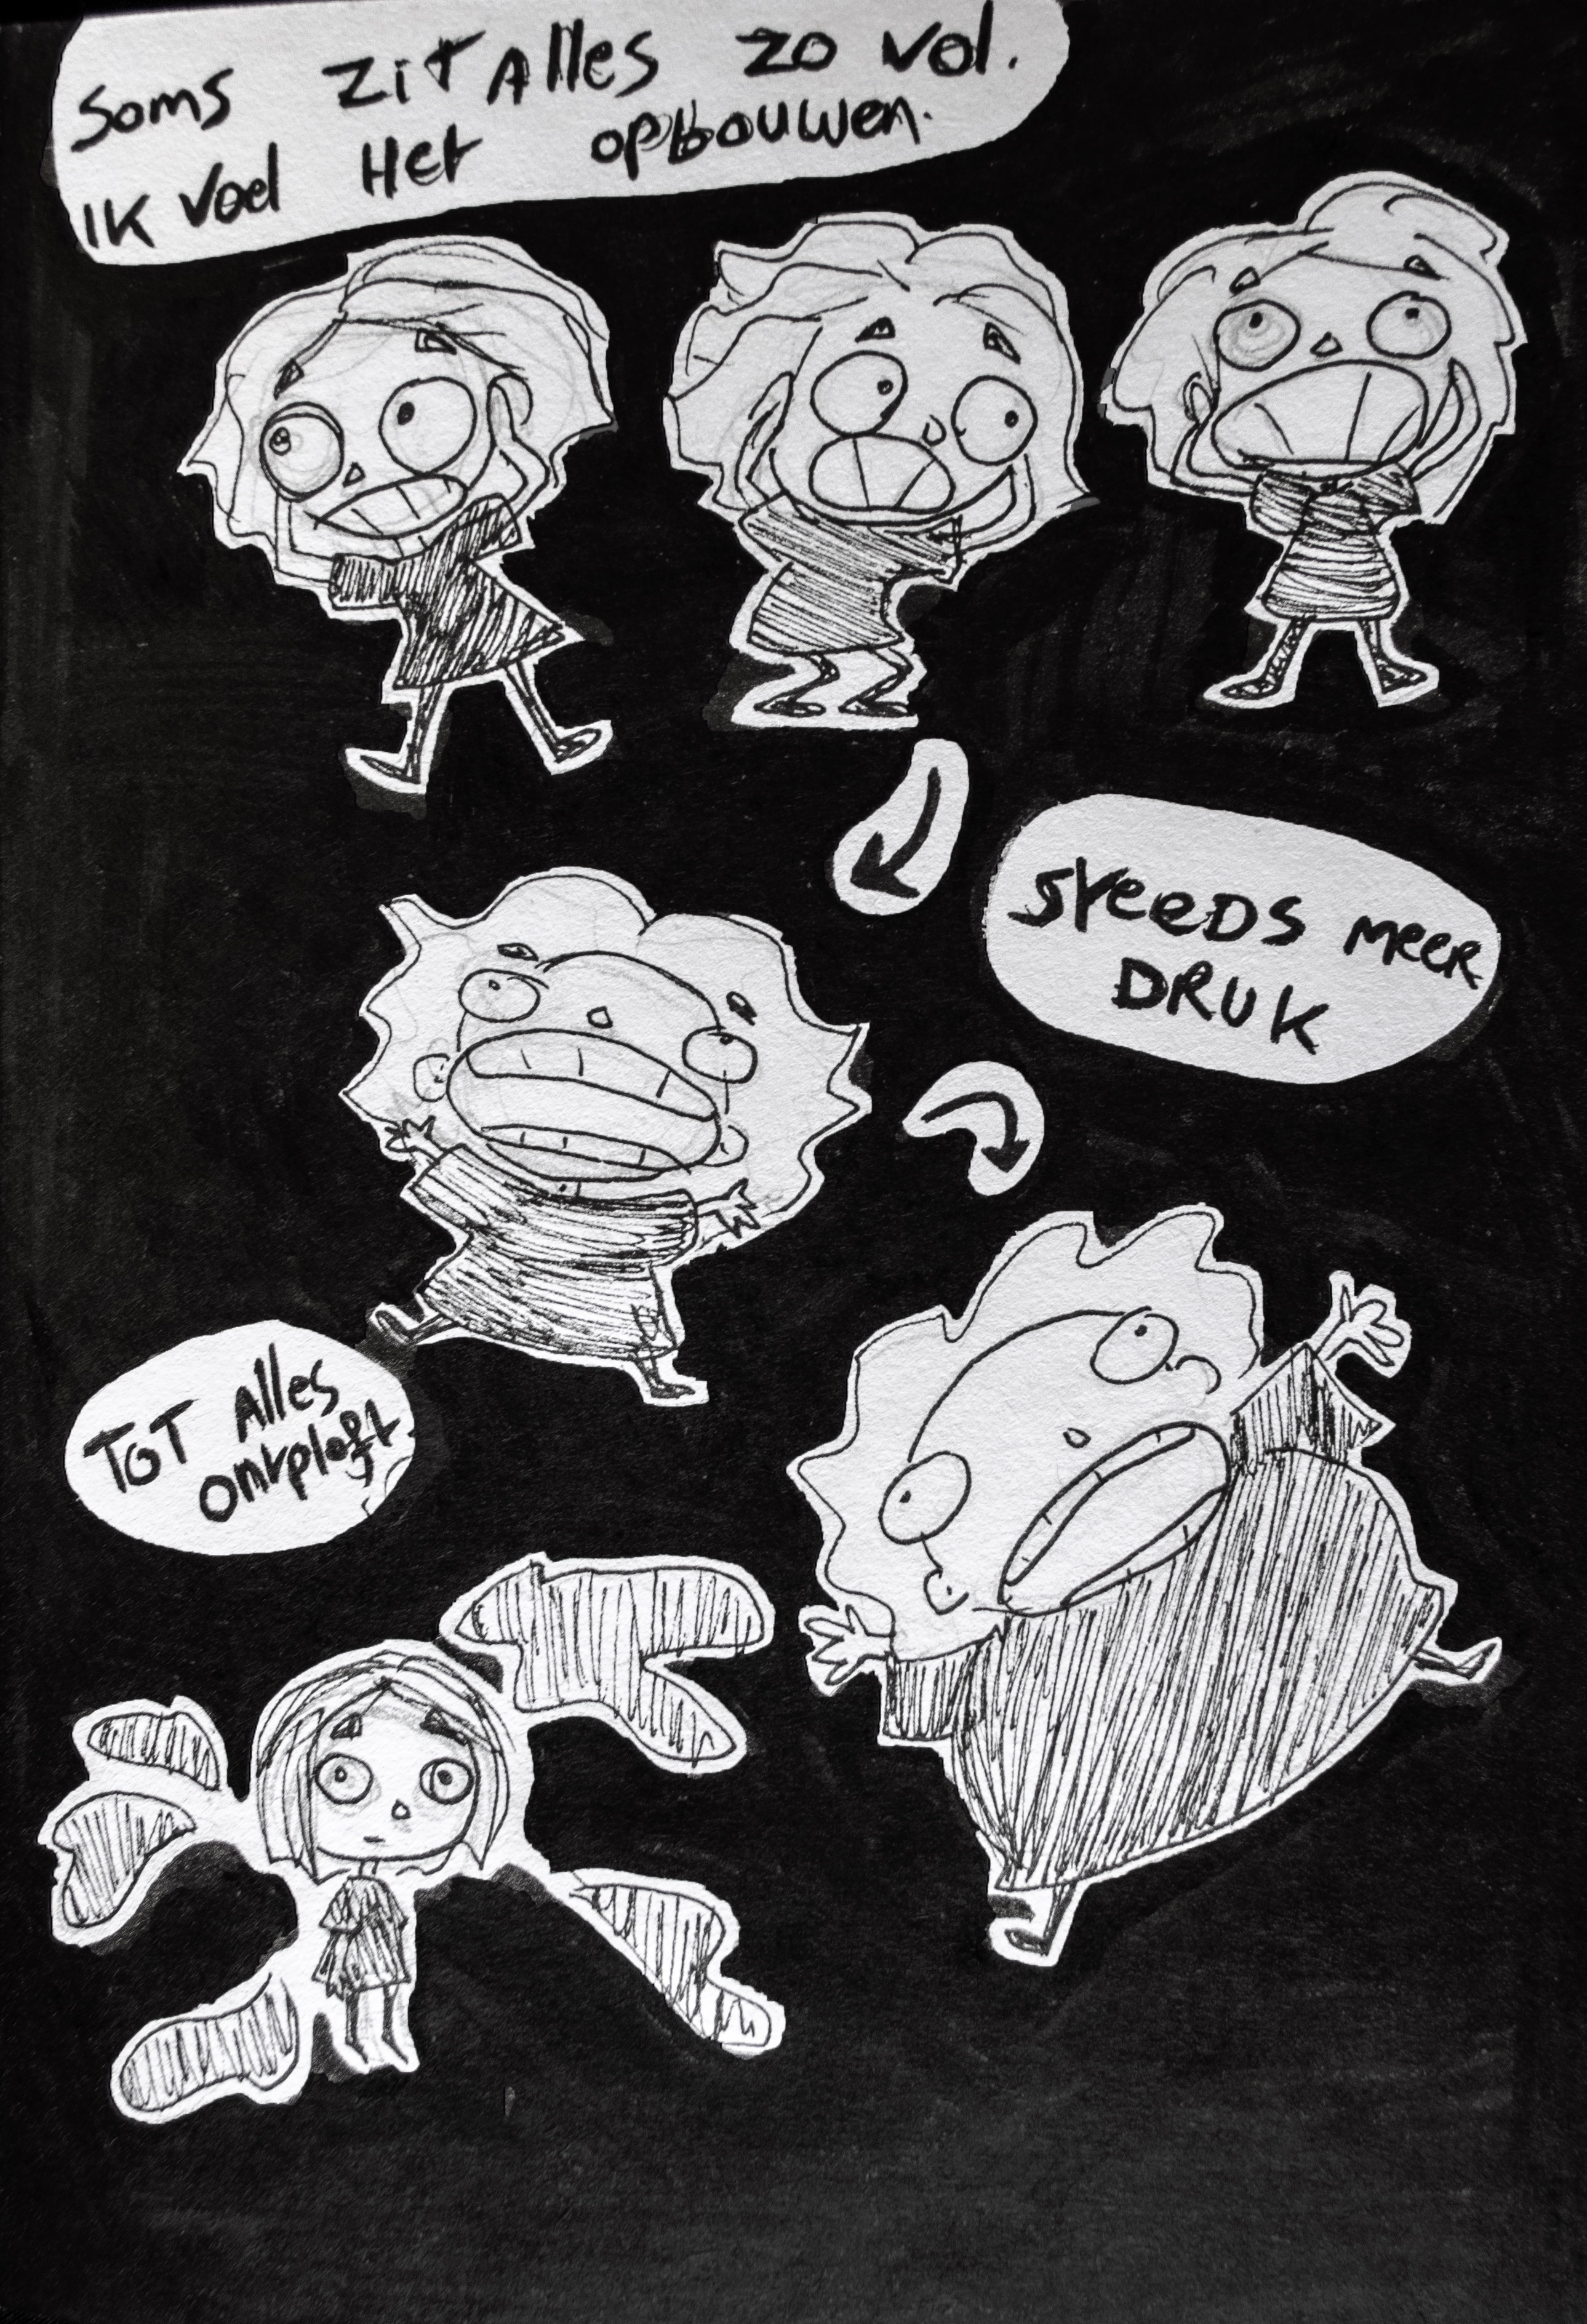 Soms zit Alles zo vol.
IK voel Het opbouwen.
STEEDS MEER
DRUK
TOT Alles
ontploft